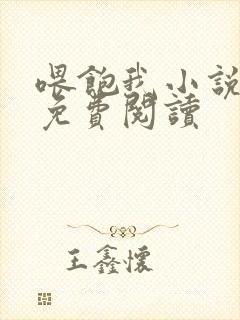 喂飽我小說
免費閱讀
王鑫懷